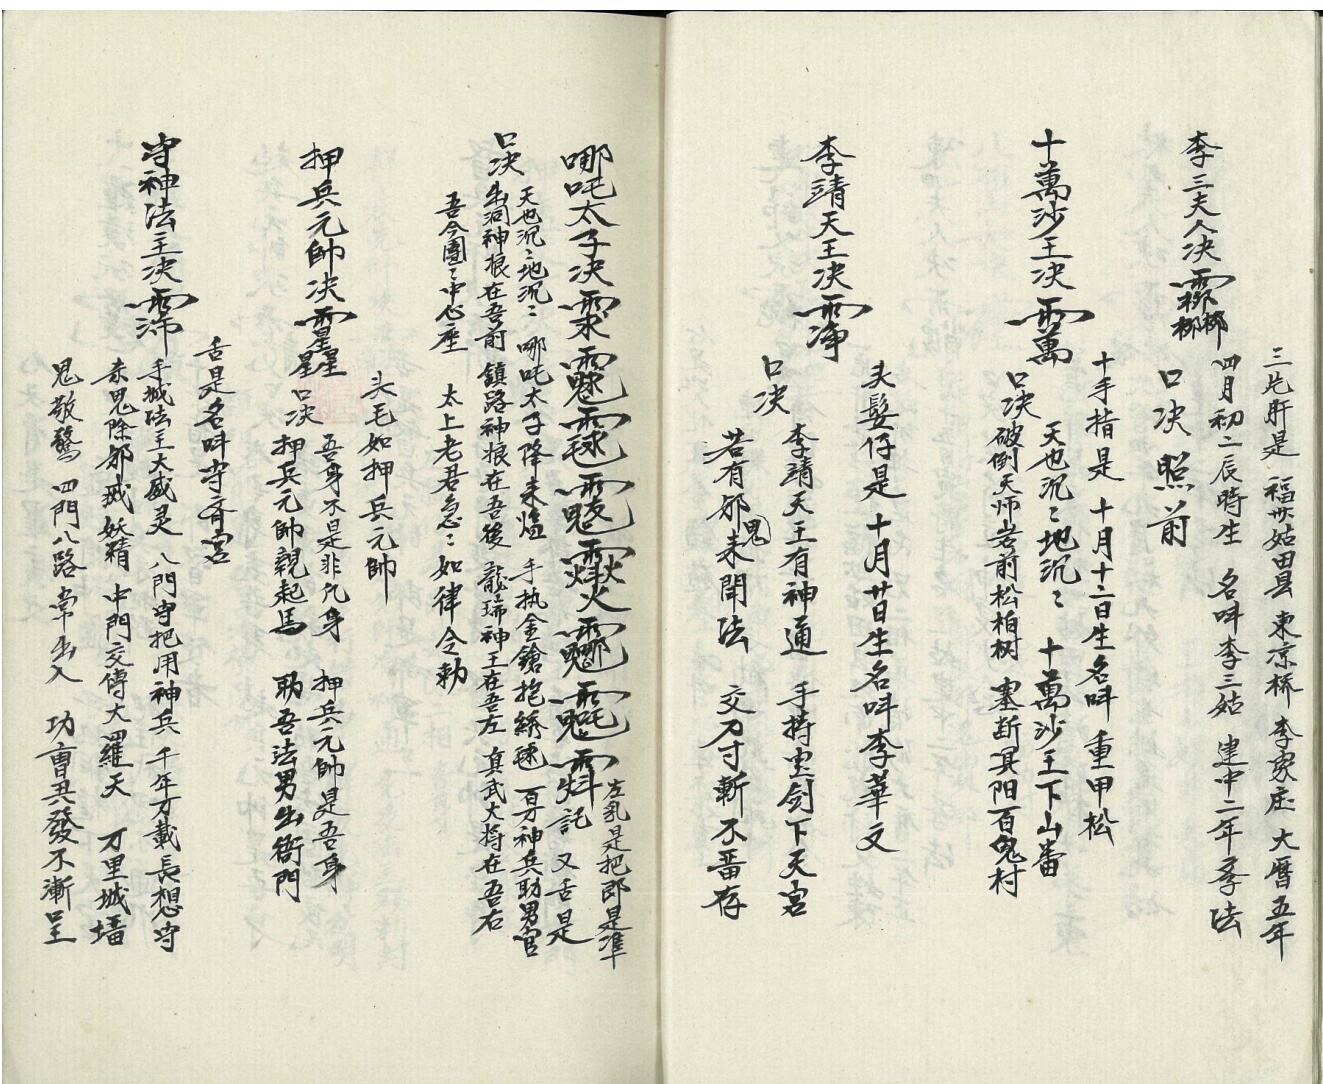 李三夫人决
三片肝是 福州姑田县 東凉桥 李家庄 大曆五年
四月初二辰時生 名呌李三姑 建中二年 法
口决照前
十萬沙王决
十手指是 十月十二日生名呌 重甲松
口决 天也沉〻地沉〻 十萬沙王下山番
破倒天师岩前松柏树 塞断 阳百鬼村
李靖天王决
头髪仔是 十月廿日生名呌李華文
口决 李靖天王有神通 手持宝剑下天宮
若有邪鬼未聞法 交刀寸斬不畱存
哪吒太子决
左乳是把郎是準
又舌是
口决 天也沉〻地沉〻 哪吒太子降来 手执金鎗抱綉毬 百万神兵助男官
出洞神狼在吾前 鎮路神狼在吾後 龍瑞神王在吾左 真武大将在吾右
吾今團〻中心座 太上老君急〻如律令勅
头毛如押兵元帅
押兵元帥决
口决 吾身不是非凢身 押兵元帅是吾身
押兵元帥親起馬 助吾法男出衙門
舌是名呌守斉宮
守神法主决
手城法主大威灵 八門守把用神兵 千年万載長想守
未鬼除邪 妖精 中門交傳大羅天 万里城墙
鬼敬驚 四門八路常出入 功曹共發不漸呈